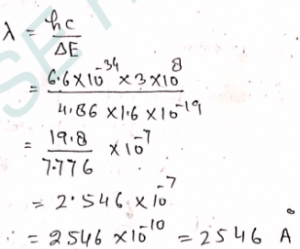 λ = hc / ΔE
= 6.6×10⁻³⁴ × 3×10⁸ / 4.86 × 1.6 × 10⁻¹⁹
= 19.8 / 7.776 × 10⁻⁷
= 2.546 × 10⁻⁷
∴ = 2546 × 10⁻¹⁰ = 2546 Å